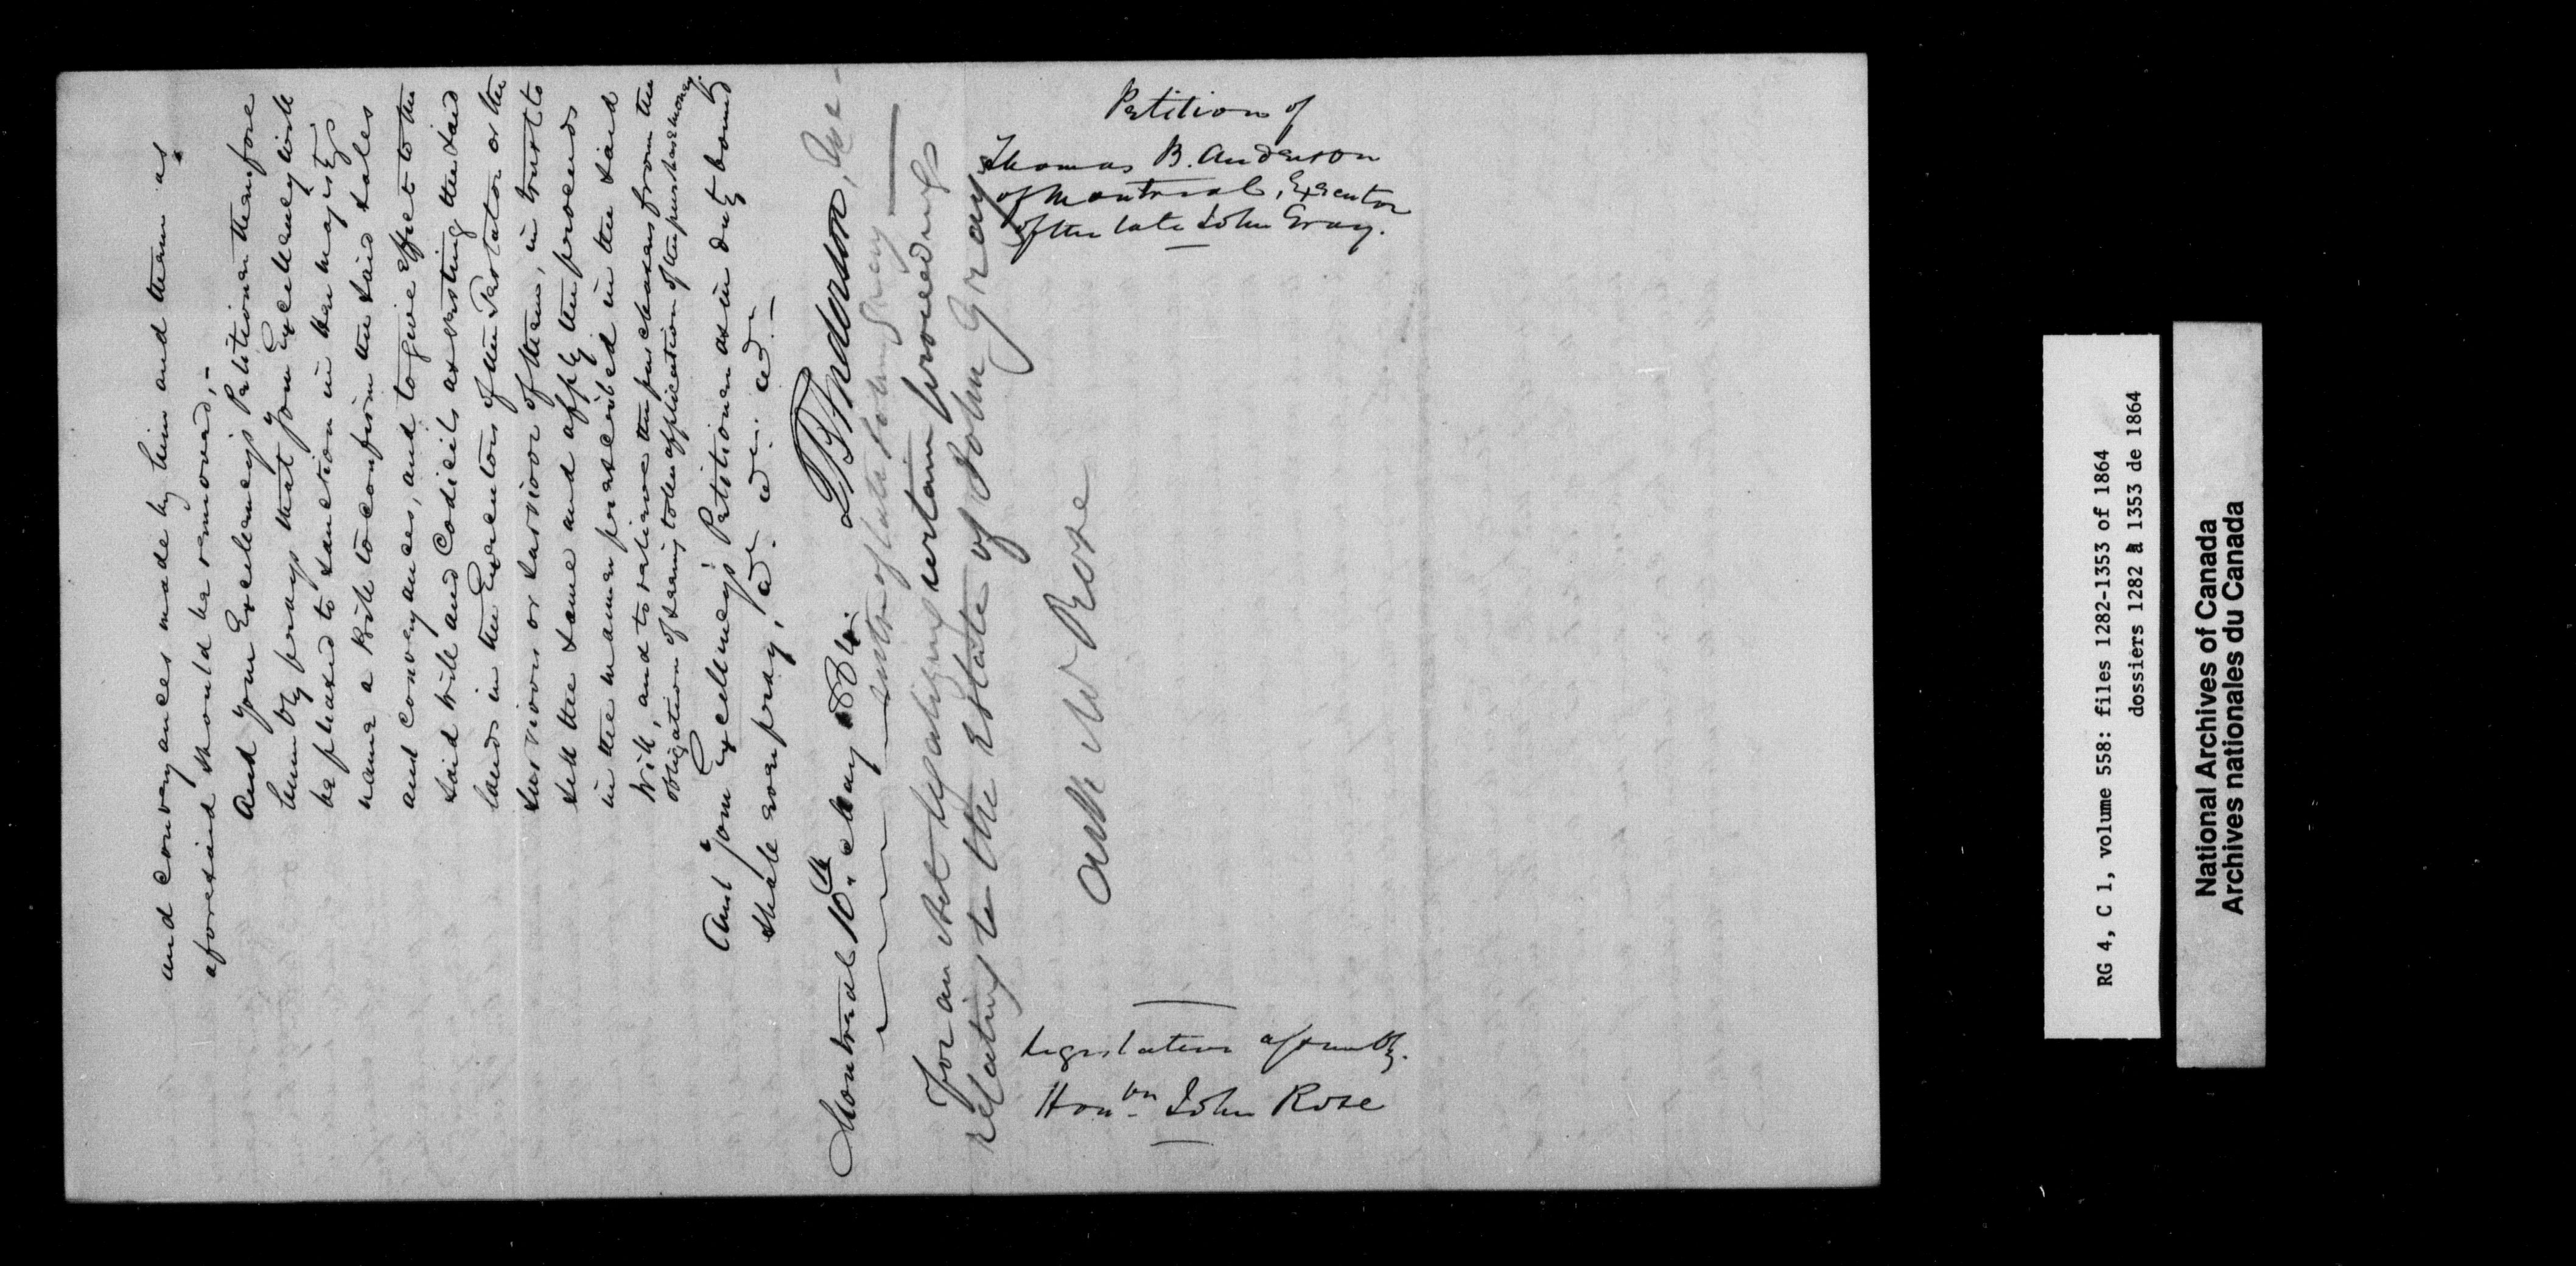 and conveyances made by him and them as
aforesaid should be removed,-
And Your Excellency's Petitioner therefore
humbly prays that Your Excellency will
be pleased to sanction in her majestys
name a Bill to confirm the said sales
and conveyances, and to give effect to the
said Will and Codicils as vesting the said
lands in the Executors of the Testator or the
survivors or survivor of them, in trust to
sell the same and apply the proceeds
in the manner prescribed in the said
Will, and to relieve the purchasers from the
obligation of seeing to the application of the purchase money.
And Your Excellency's Petitioner as in duty bound
shall ever pray, &c. &c. &c.-
TB Anderson, Exe-
Montreal 10th. May 1864. cutor of late John Gray
For an Act legalizing certain proceedings
relating to the Estate of John Gray
Ask Mr Rose
Petition of
Thomas B. Anderson
of Montreal, Executor
of the late John Gray.
Legislative Assembly.
Honble John Rose
RG 4, C 1, volume 558: files 1282-1353 of 1864
dossiers 1282 à 1353 de 1864
National Archives of Canada
Archives nationales du Canada